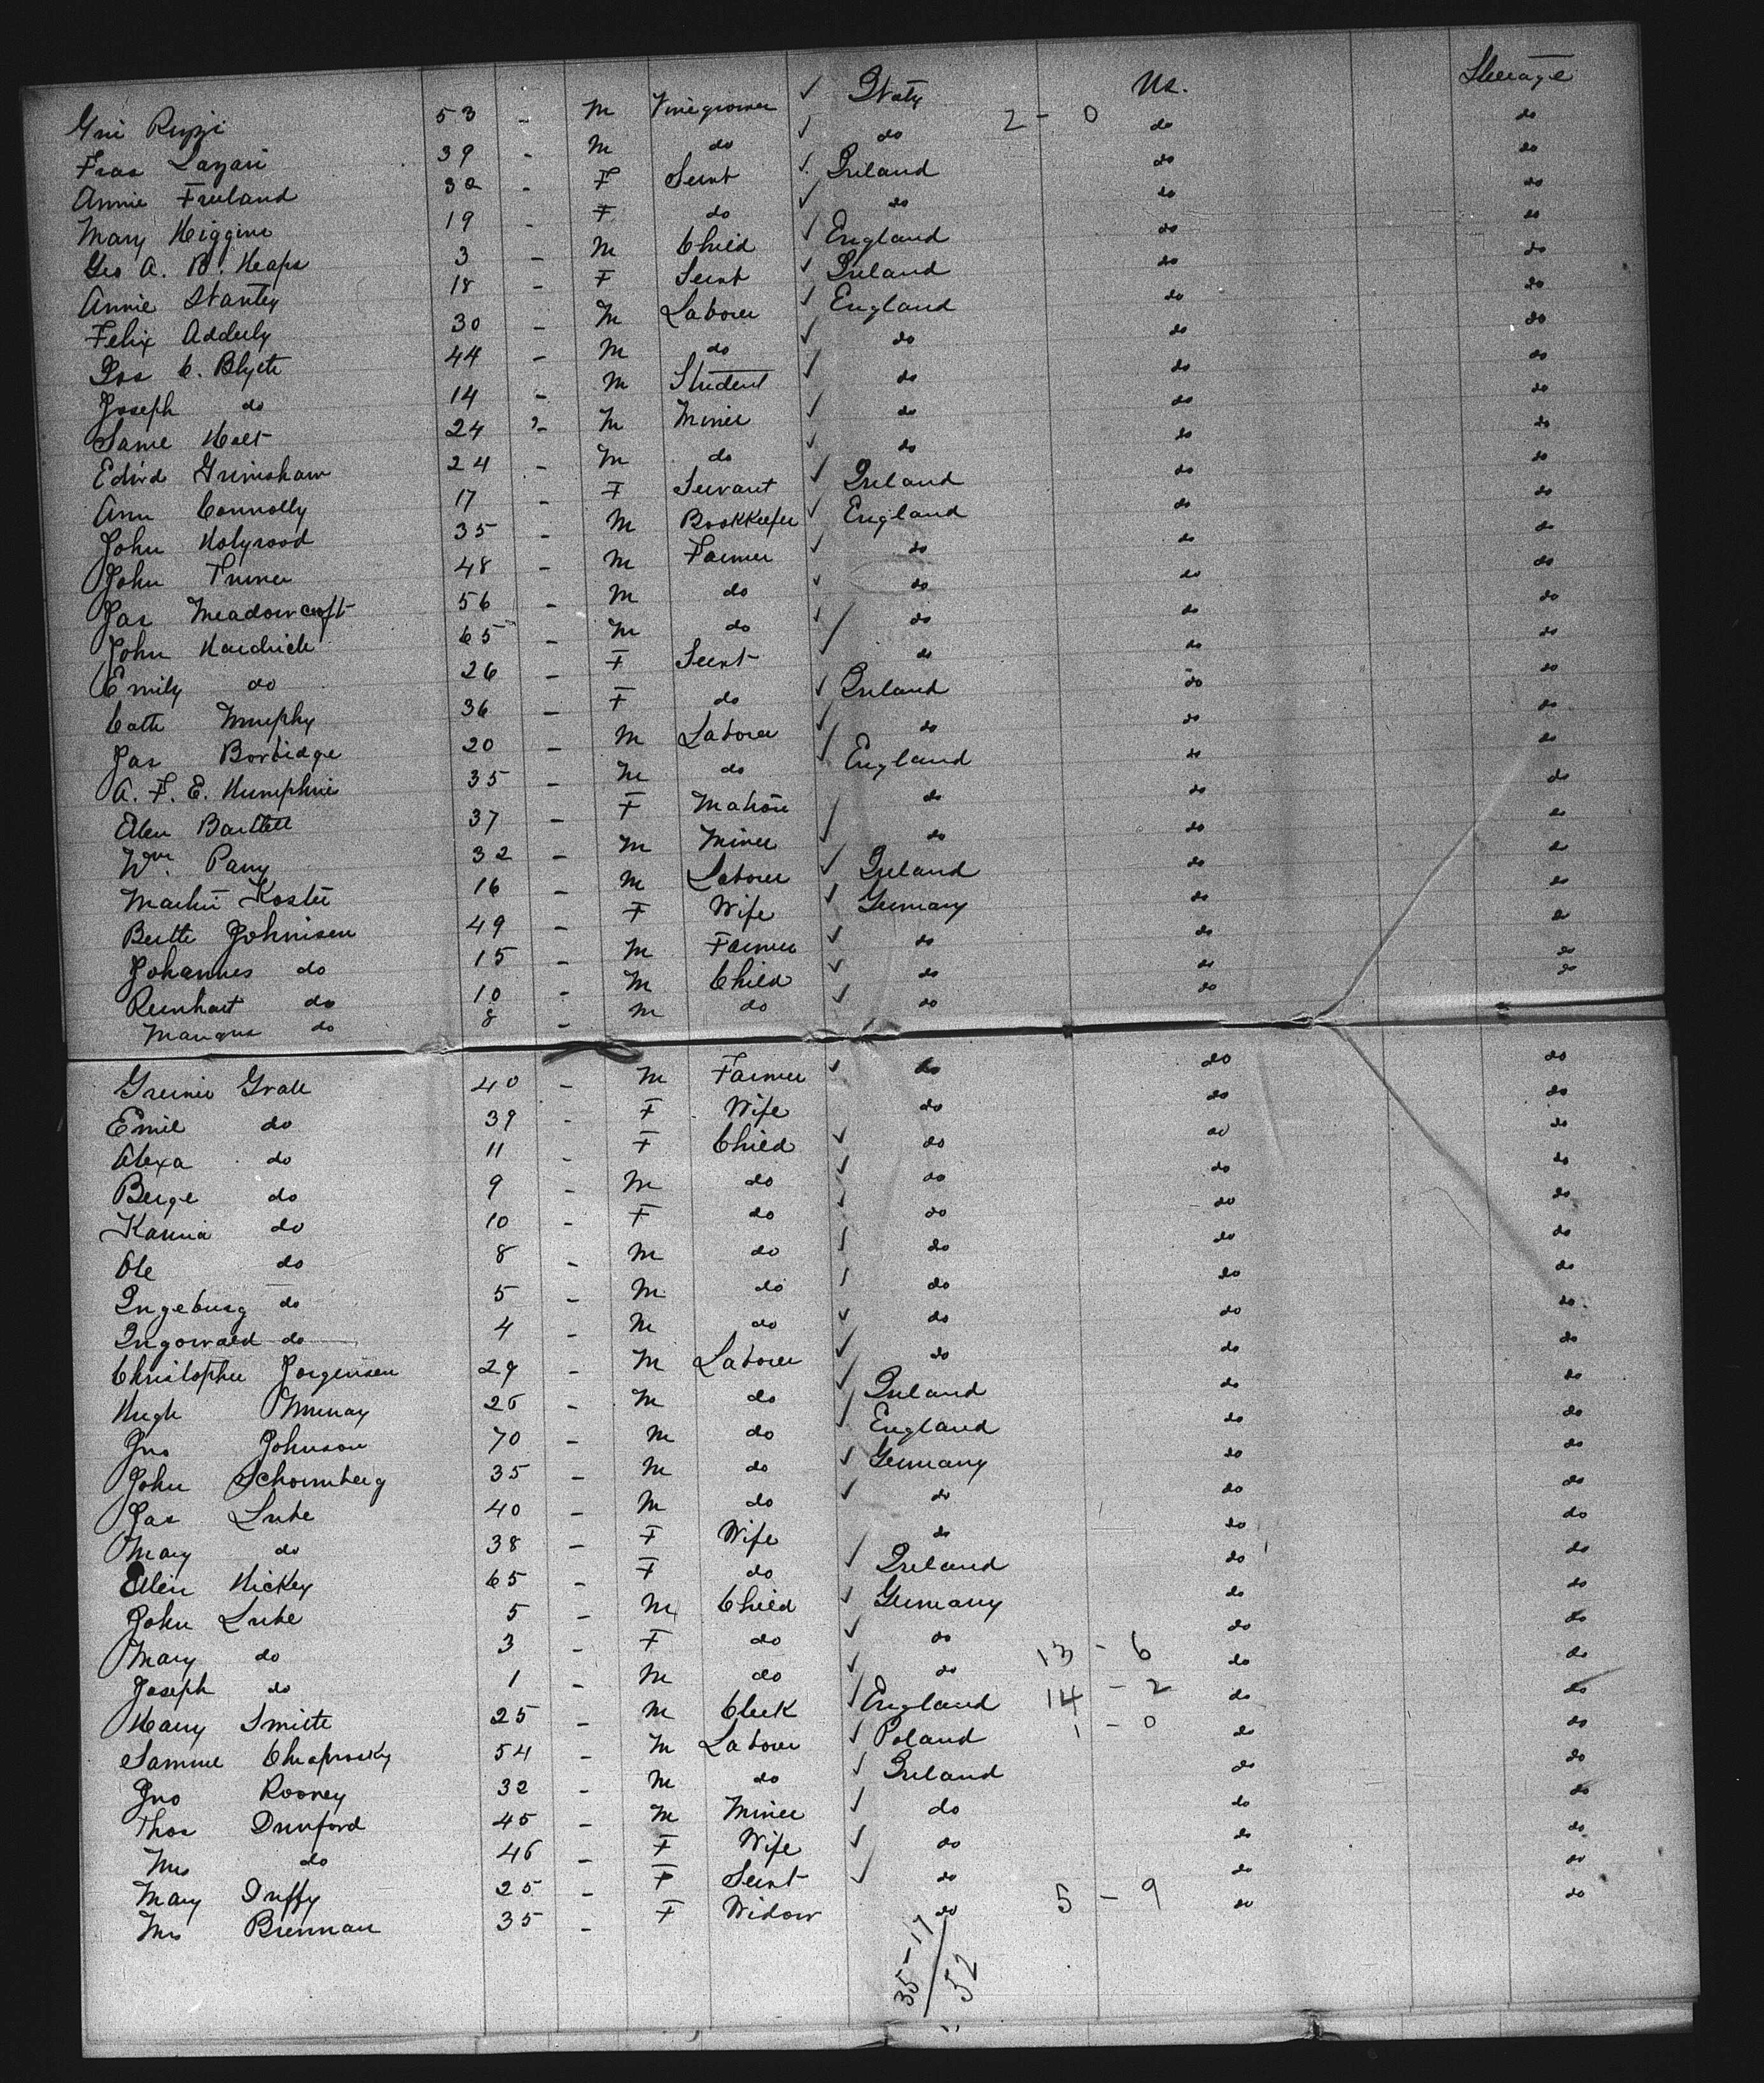 Gni Ruzzi 53 - M Vinegrower ✓ Italy U.S. Steerage
Fras Lazari 39 - M do ✓ do 2 - 0 do do
Annie Freeland 32 - F Servt ✓ Ireland do do
Mary Higgins 19 - F do ✓ do do do
Geo A. B. Heaps 3 - M Child ✓ England do do
Annie Stanley 18 - F Servt ✓ Ireland do do
Felix Adderly 30 - M Laborer ✓ England do do
Jos C. Blyth 44 - M do ✓ do do do
Joseph do 14 - M Student ✓ do do do
Saml Holt 24 - M Miner ✓ do do do
Edwd Grimshaw 24 - M do ✓ do do do
Ann Connolly 17 - F Servant ✓ Ireland do do
John Holyrood 35 - M Bookkeeper ✓ England do do
John Turner 48 - M Farmer ✓ do do do
Jas Meadowcroft 56 - M do ✓ do do do
John Hardwick 65 - M do ✓ do do do
Emily do 26 - F Servt / do do do
Cath Murphy 36 - F do ✓ Ireland do do
Jas Borbidge 20 - M Laborer ✓ do do do
A. F. E. Humphrie 35 - M do ✓ England do do
Ellen Bartlett 37 - F Matron / do do do
Wm. Parry 32 - M Miner ✓ do do do
Martin Koster 16 - M Laborer ✓ Ireland do do
Berthe Johnisen 49 - F Wife ✓ Germany do do
Johannes do 15 - M Farmer ✓ do do do
Reinhart do 10 - M Child ✓ do do do
Mangnus do 8 - M do ✓ do do do
Greinir Grall 40 - M Farmer ✓ do do do
Emil do 39 - F Wife do do do
Alexa do 11 - F Child ✓ do do do
Berge do 9 - M do ✓ do do do
Kanna do 10 - F do ✓ do do do
Ole do 8 - M do / do do do
Ingeburg do 5 - M do / do do do
Ingowald do 4 - M do ✓ do do do
Christopher Jorgensen 29 - M Laborer ✓ do do do
Hugh Murray 26 - M do ✓ Ireland do do
Jno Johnson 70 - M do / England do do
John Schornberg 35 - M do ✓ Germany do do
Jas Luhe 40 - M do ✓ do do do
Mary do 38 - F Wife do do do
Ellen Hickey 65 - F do ✓ Ireland do do
John Luhe 5 - M Child ✓ Germany do do
Mary do 3 - F do ✓ do do do
Joseph do 1 - M do ✓ do 13 - 6 do do
Harry Smith 25 - M Clerk / England 14 - 2 do do
Samuel 54 - M Laborer ✓ Poland 1 - 0 do do
Jno Rooney 32 - M do ✓ Ireland do do
Thos Dunford 45 - M Miner ✓ do do do
Mrs do 46 - F Wife ✓ do do do
Mary Duffy 25 - F Servt ✓ do do do
Mrs Brennan 35 - F Widow do 5 - 9 do do
35 - 17 / 52